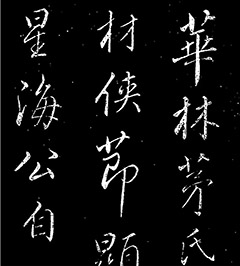 華林茅氏
材俠節顯
星海公自